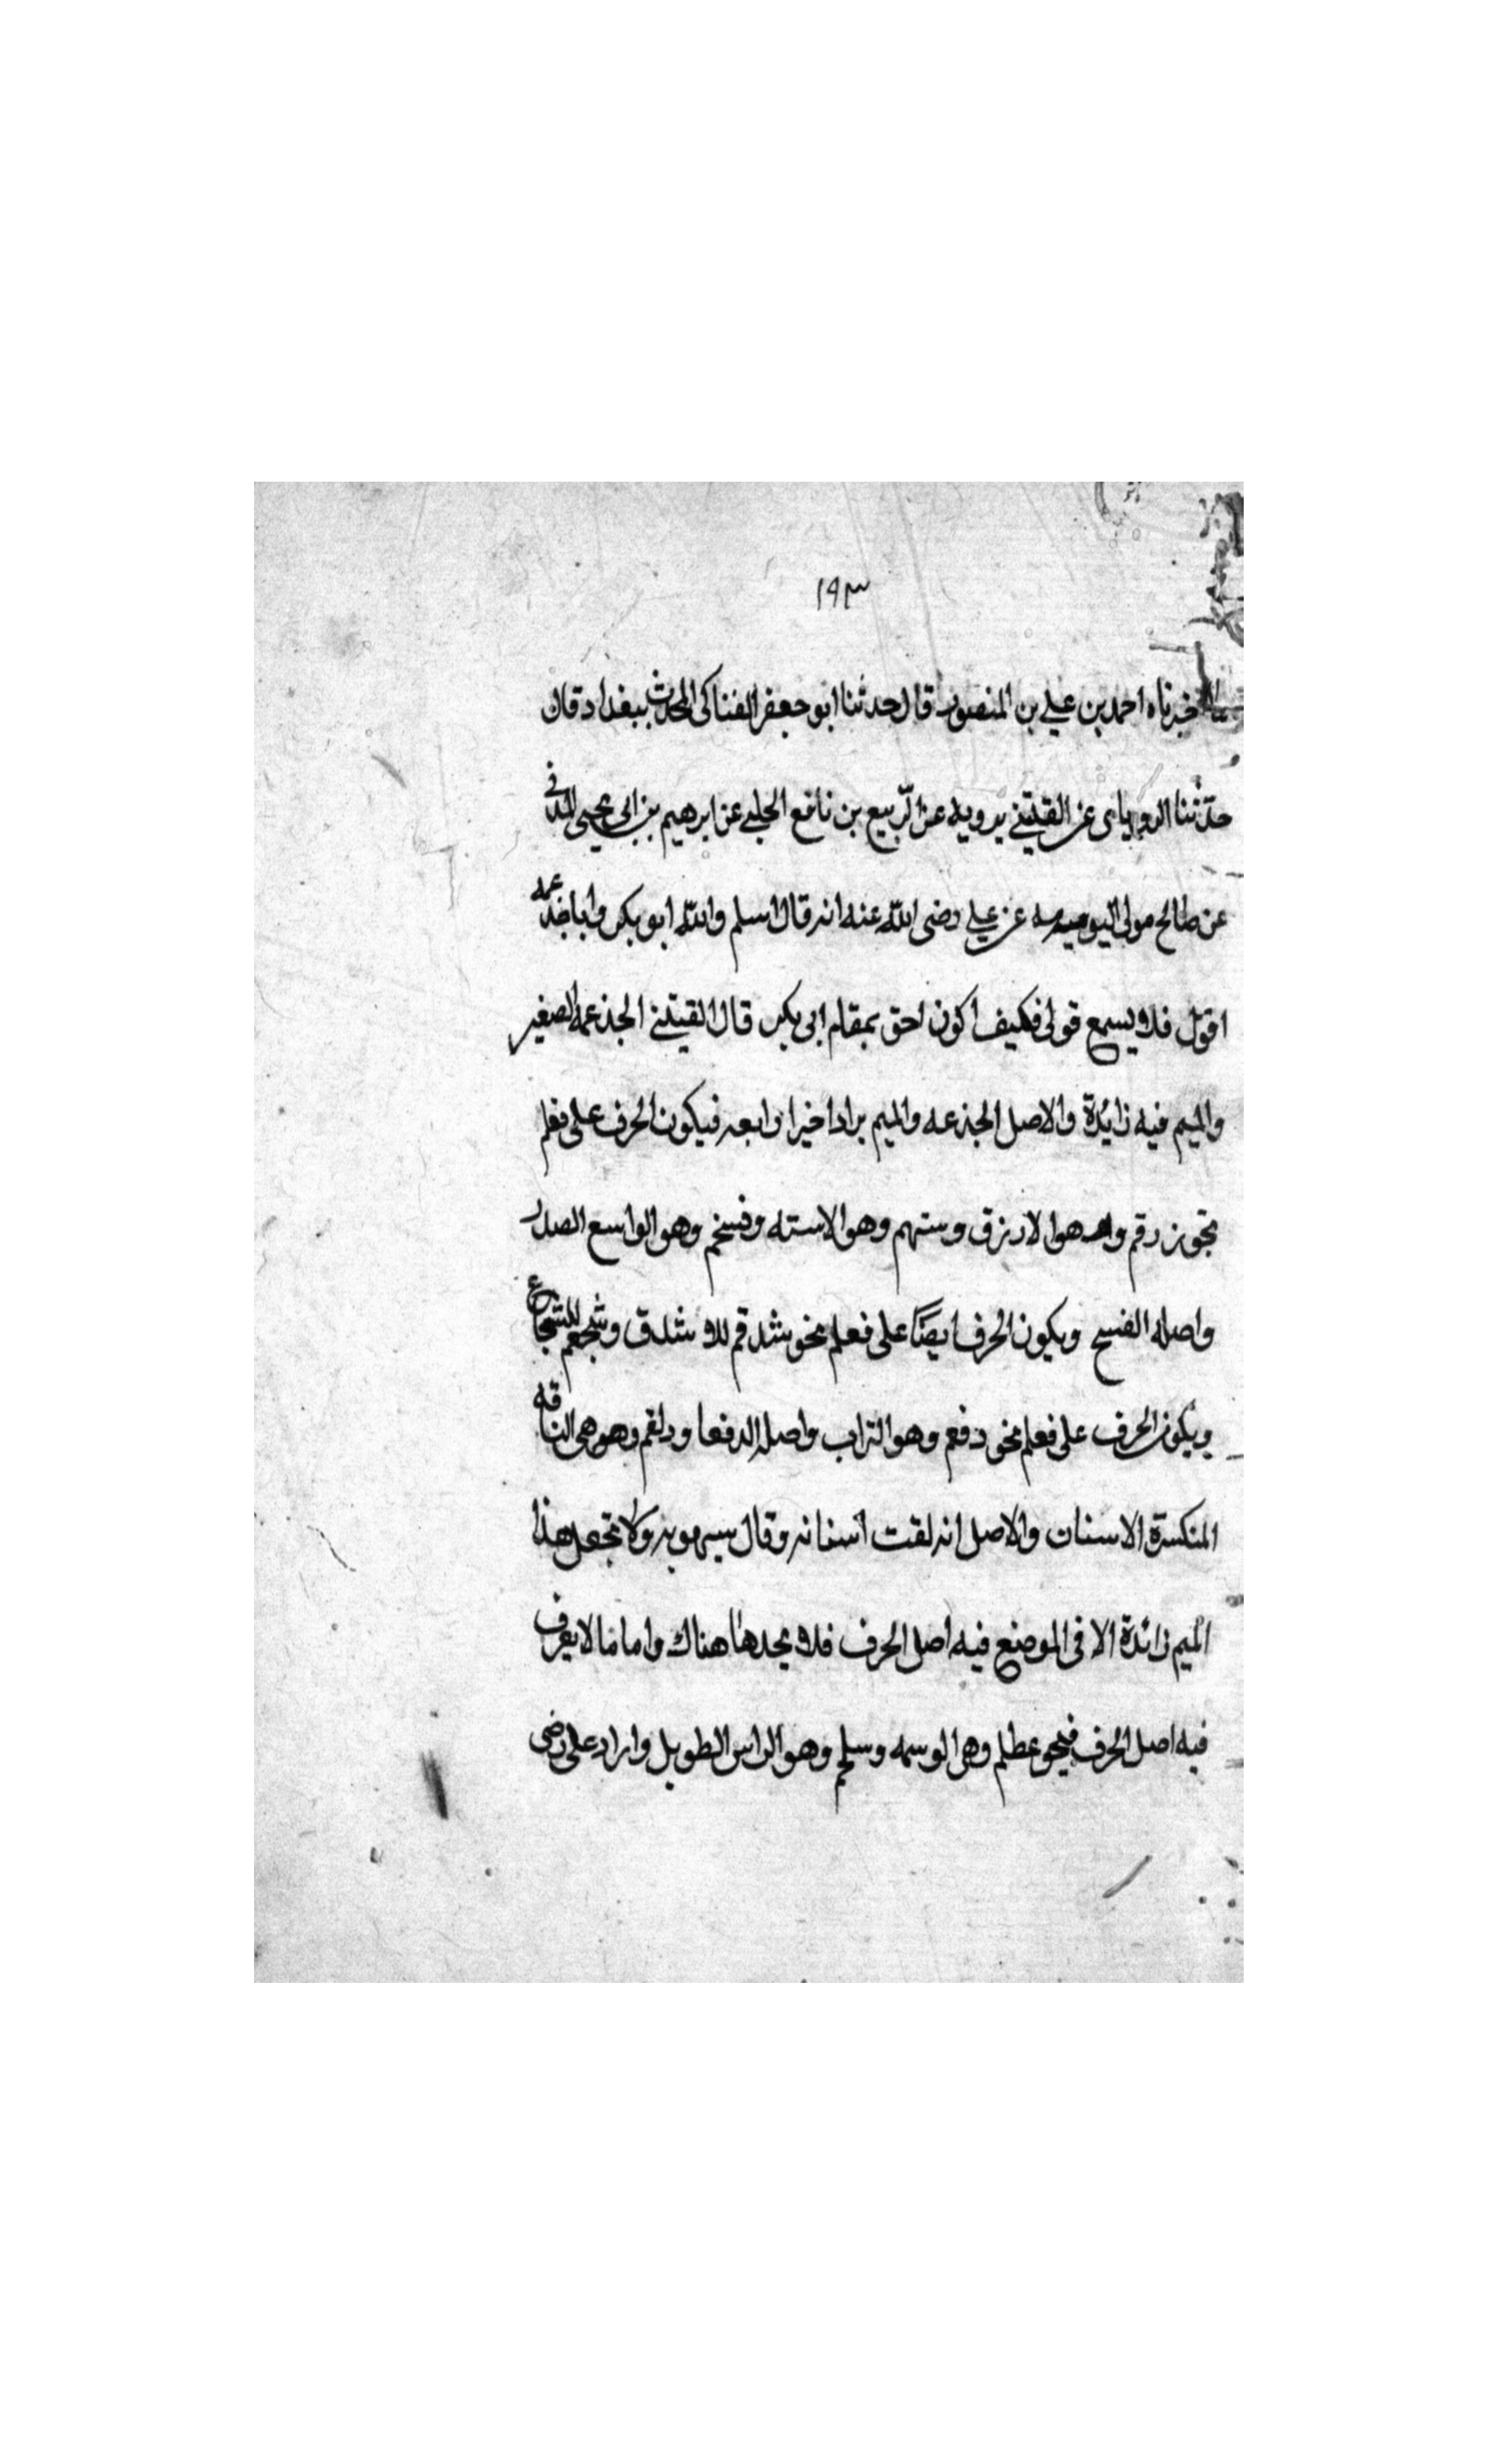 ١٩٣
اخبرناه احمد بن علي بن المنصور قال حدثنا ابو جعفر الفناكى المحدث ببغداد قال
حدّثنا الروياى عن القتيني يرويه عن الرّبيع بن نافع الحلبي عن ابرهيم بن ابى يحيى المدنى
عن صالح مولى عن علي رضى الله عنه انه قال اسلم والله ابو بكر وانا جذعمه
اقول فلا يسمع قولى فكيف اكون احق بمقام ابى بكر قال القتيني الجذعمه الصغير
والميم فيه زائدة والاصل الجذعه والميم يزاد اخيرا رابعه فيكون الحرف على فعلم
نحو زرقم هو الازرق وستهم وهو الاسته وفسخم وهو الواسع الصدر
واصله الفسح ويكون الحرف ايضًا على فعلم نحو شدقم للا شدق وشجعم للشجاع
ويكون الحرف على فعلم نحو دقعم وهو التراب واصله الدقعا ودلقم وهو هى الناقه
المنكسرة الاسنان والاصل اندلقت اسنانه وقال سيبويه ولا تجعل هذا
الميم زائدة الا فى الموضع فيه اصل الحرف فلا يجدها هناك واما ما لا يعرف
فيه اصل الحرف فنحو عظلم وهى الوسمه وسلجم وهو الراس الطويل واراد على رضى